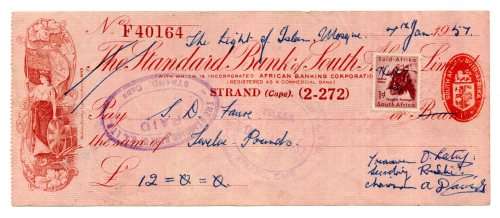 No F40164
The Light of Islam Mosque 7th Jan. 1957
The Standard Bank of South
WITH WHICH IS INCORPORATED AFRICAN BANKING CORPORATION
(REGISTERED AS A COMMERCIAL BANK)
STRAND (Cape). (2-272)
Suid-Afrika
1d
South Africa
Pay S. D. Faure or Bearer
PAID
the sum of Twelve Pounds.
£ 12 = 0 = 0
Treasurer
Chairman A. Davids